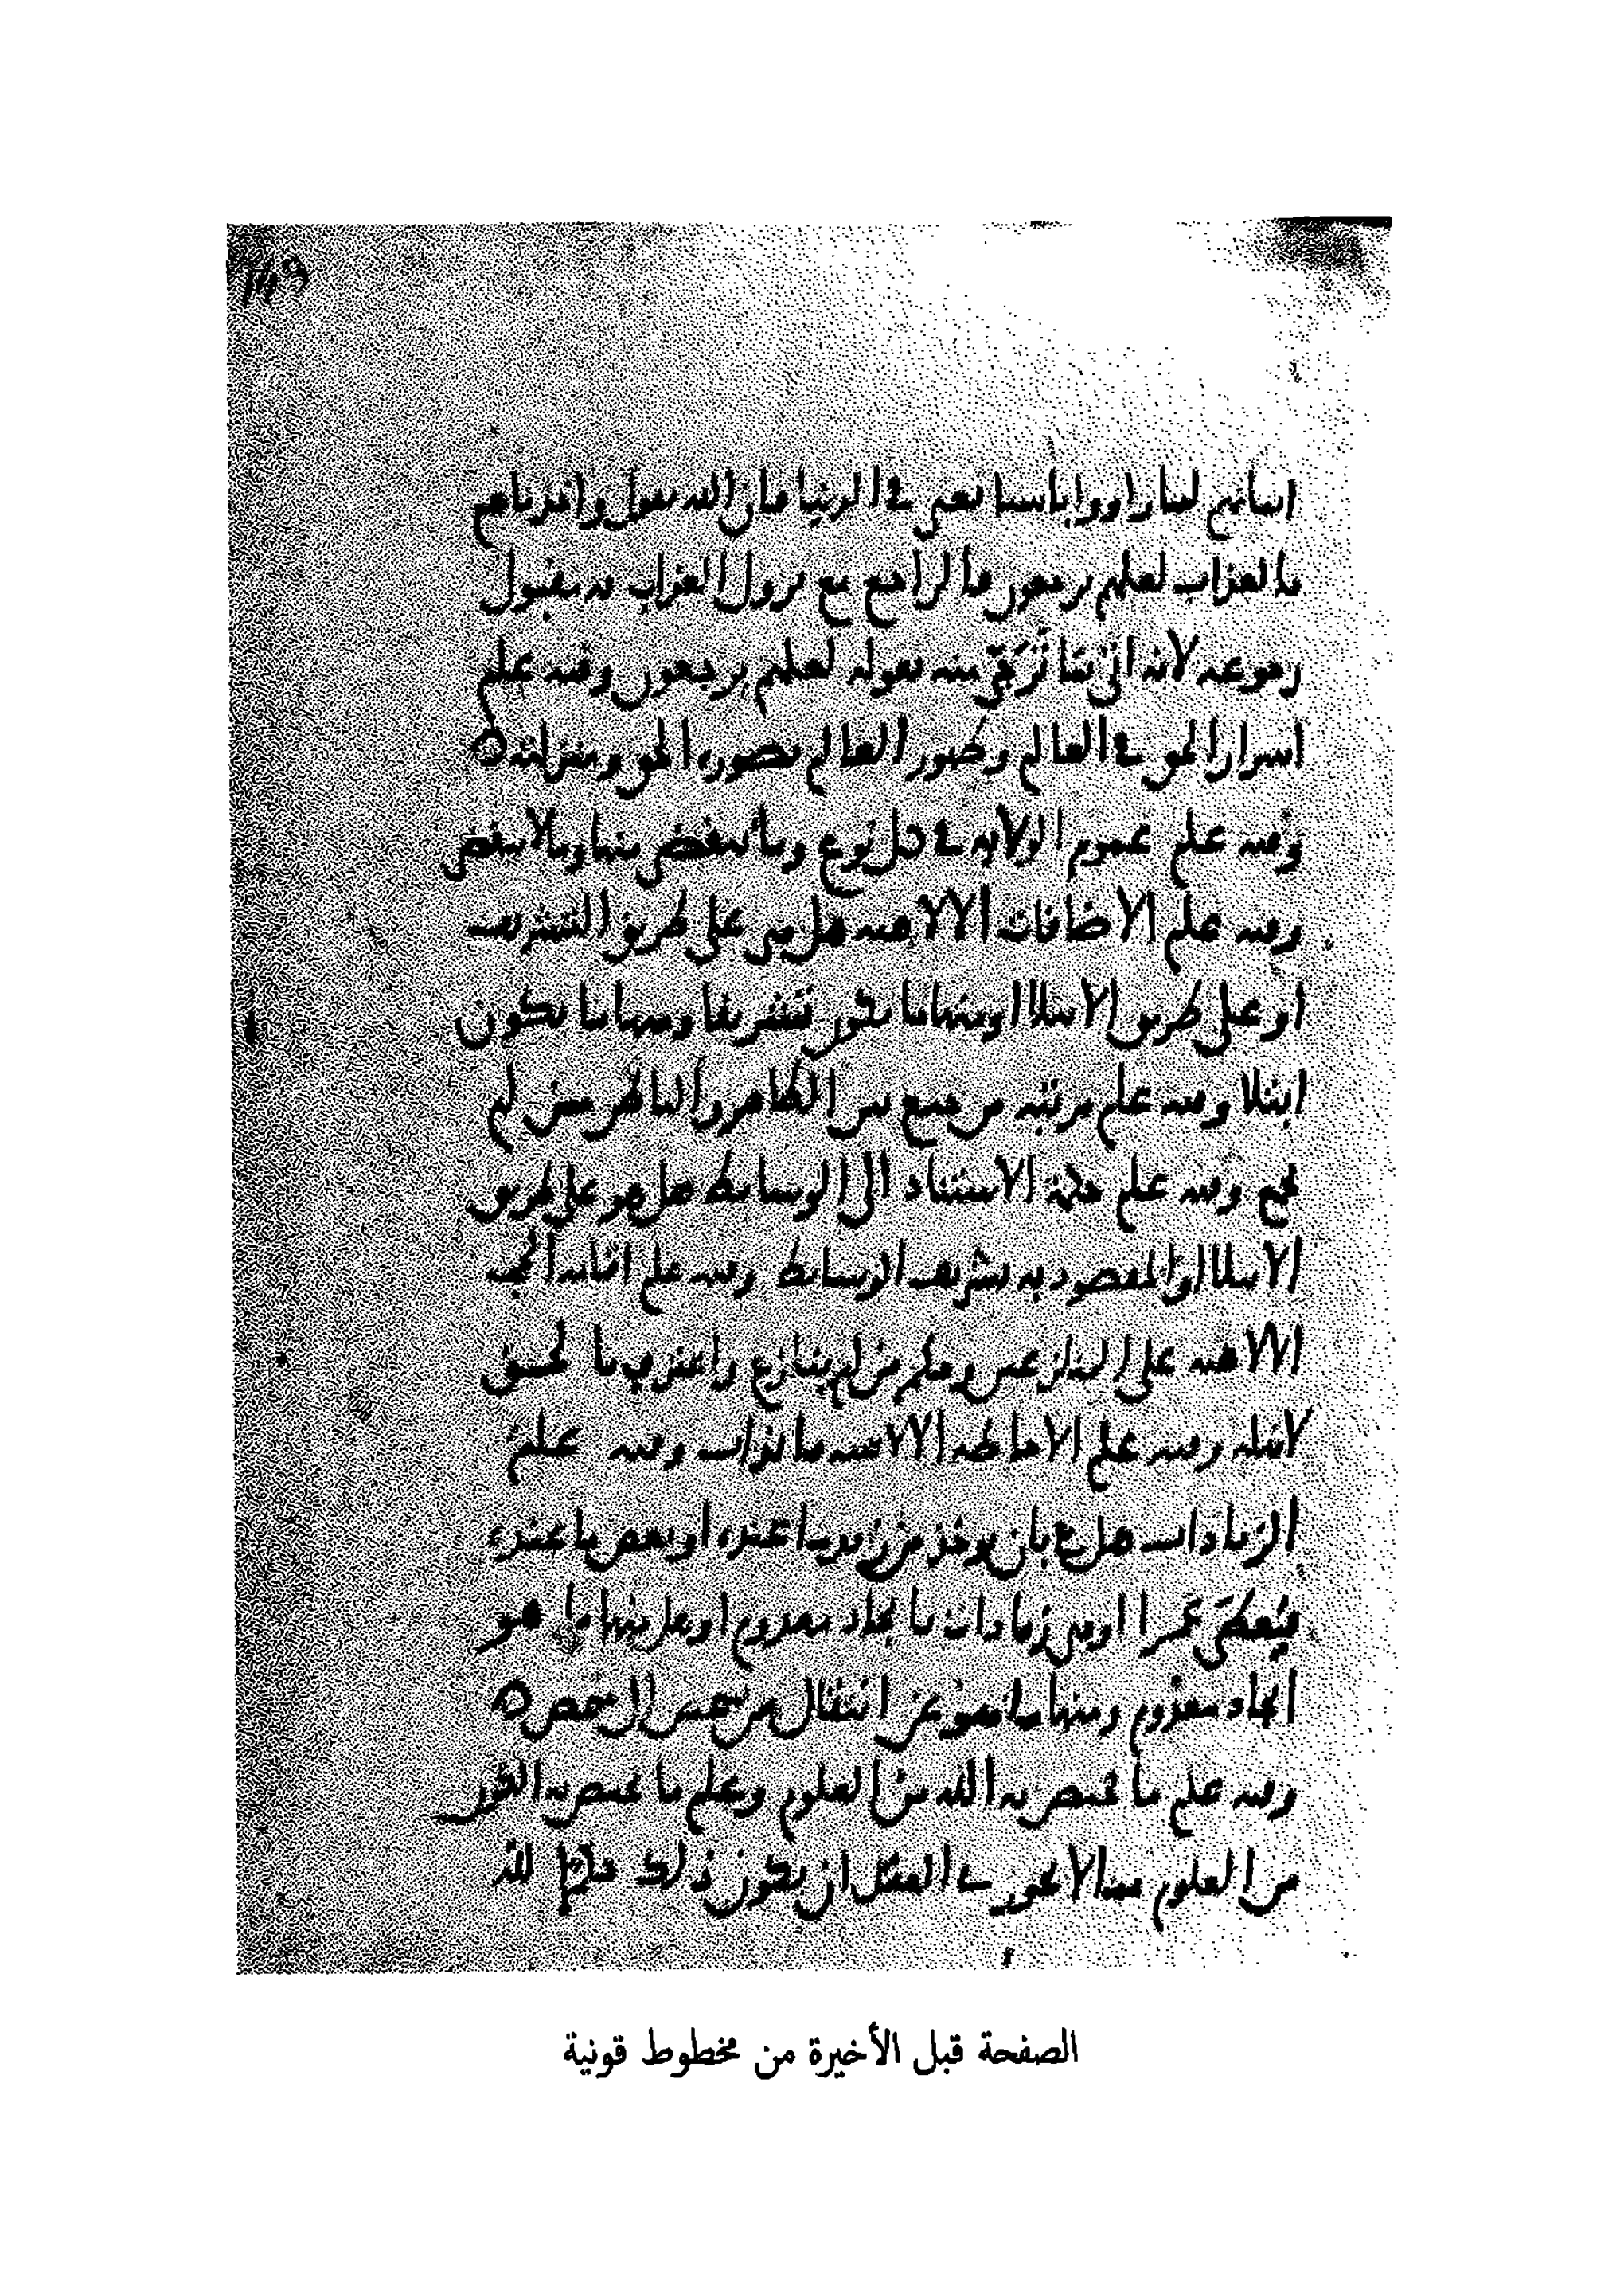 149
ايمانهم لما راوا باسنا يعنى فى الدنيا فان الله يقول واخذناهم
بالعذاب لعلهم يرجعون فالراجع مع نزول العذاب به مقبول
رجوعه لانه اتى بما ترجى منه بقوله لعلهم يرجعون وفيه علم
اسرار الحق فى العالم وظهور العالم بصورة الحق ومنزلته
وفيه علم عموم الولاية فى كل نوع وما ينقضى منها وما لا ينقضى
وفيه علم الاضافات الالاهية هل هى على طريق التشريف
او على طريق الابتلا او منها ما يكون تشريفا ومنها ما يكون
ابتلا وفيه علم مرتبة من جمع بين الظاهر والباطن ممن لم
يجمع وفيه علم حكمة الاستناد الى الوسايط هل هو على طريق
الابتلا او المقصود به تشريف الوسايط وفيه علم اقامة الحجج
الالاهية على المنازعين وعلم من لم ينازع واعترف بالحق
لاهله وفيه علم الاحاطة الالاهية بالذات وفيه علم
الزيادات هل هى بان يوخذ من زيد ما عنده او بعض ما عنده
فيعطى عمرا او هى زيادات بايجاد معدوم او هل منها ما هو
ايجاد معدوم ومنها ما هو عن انتقال من شخص الى شخص
وفيه علم ما يختص به الله من العلوم وعلم ما يختص به الكون
من العلوم مما لا يجوز فى العقل ان يكون ذلك حكما لله
الصفحة قبل الأخيرة من مخطوط قونية